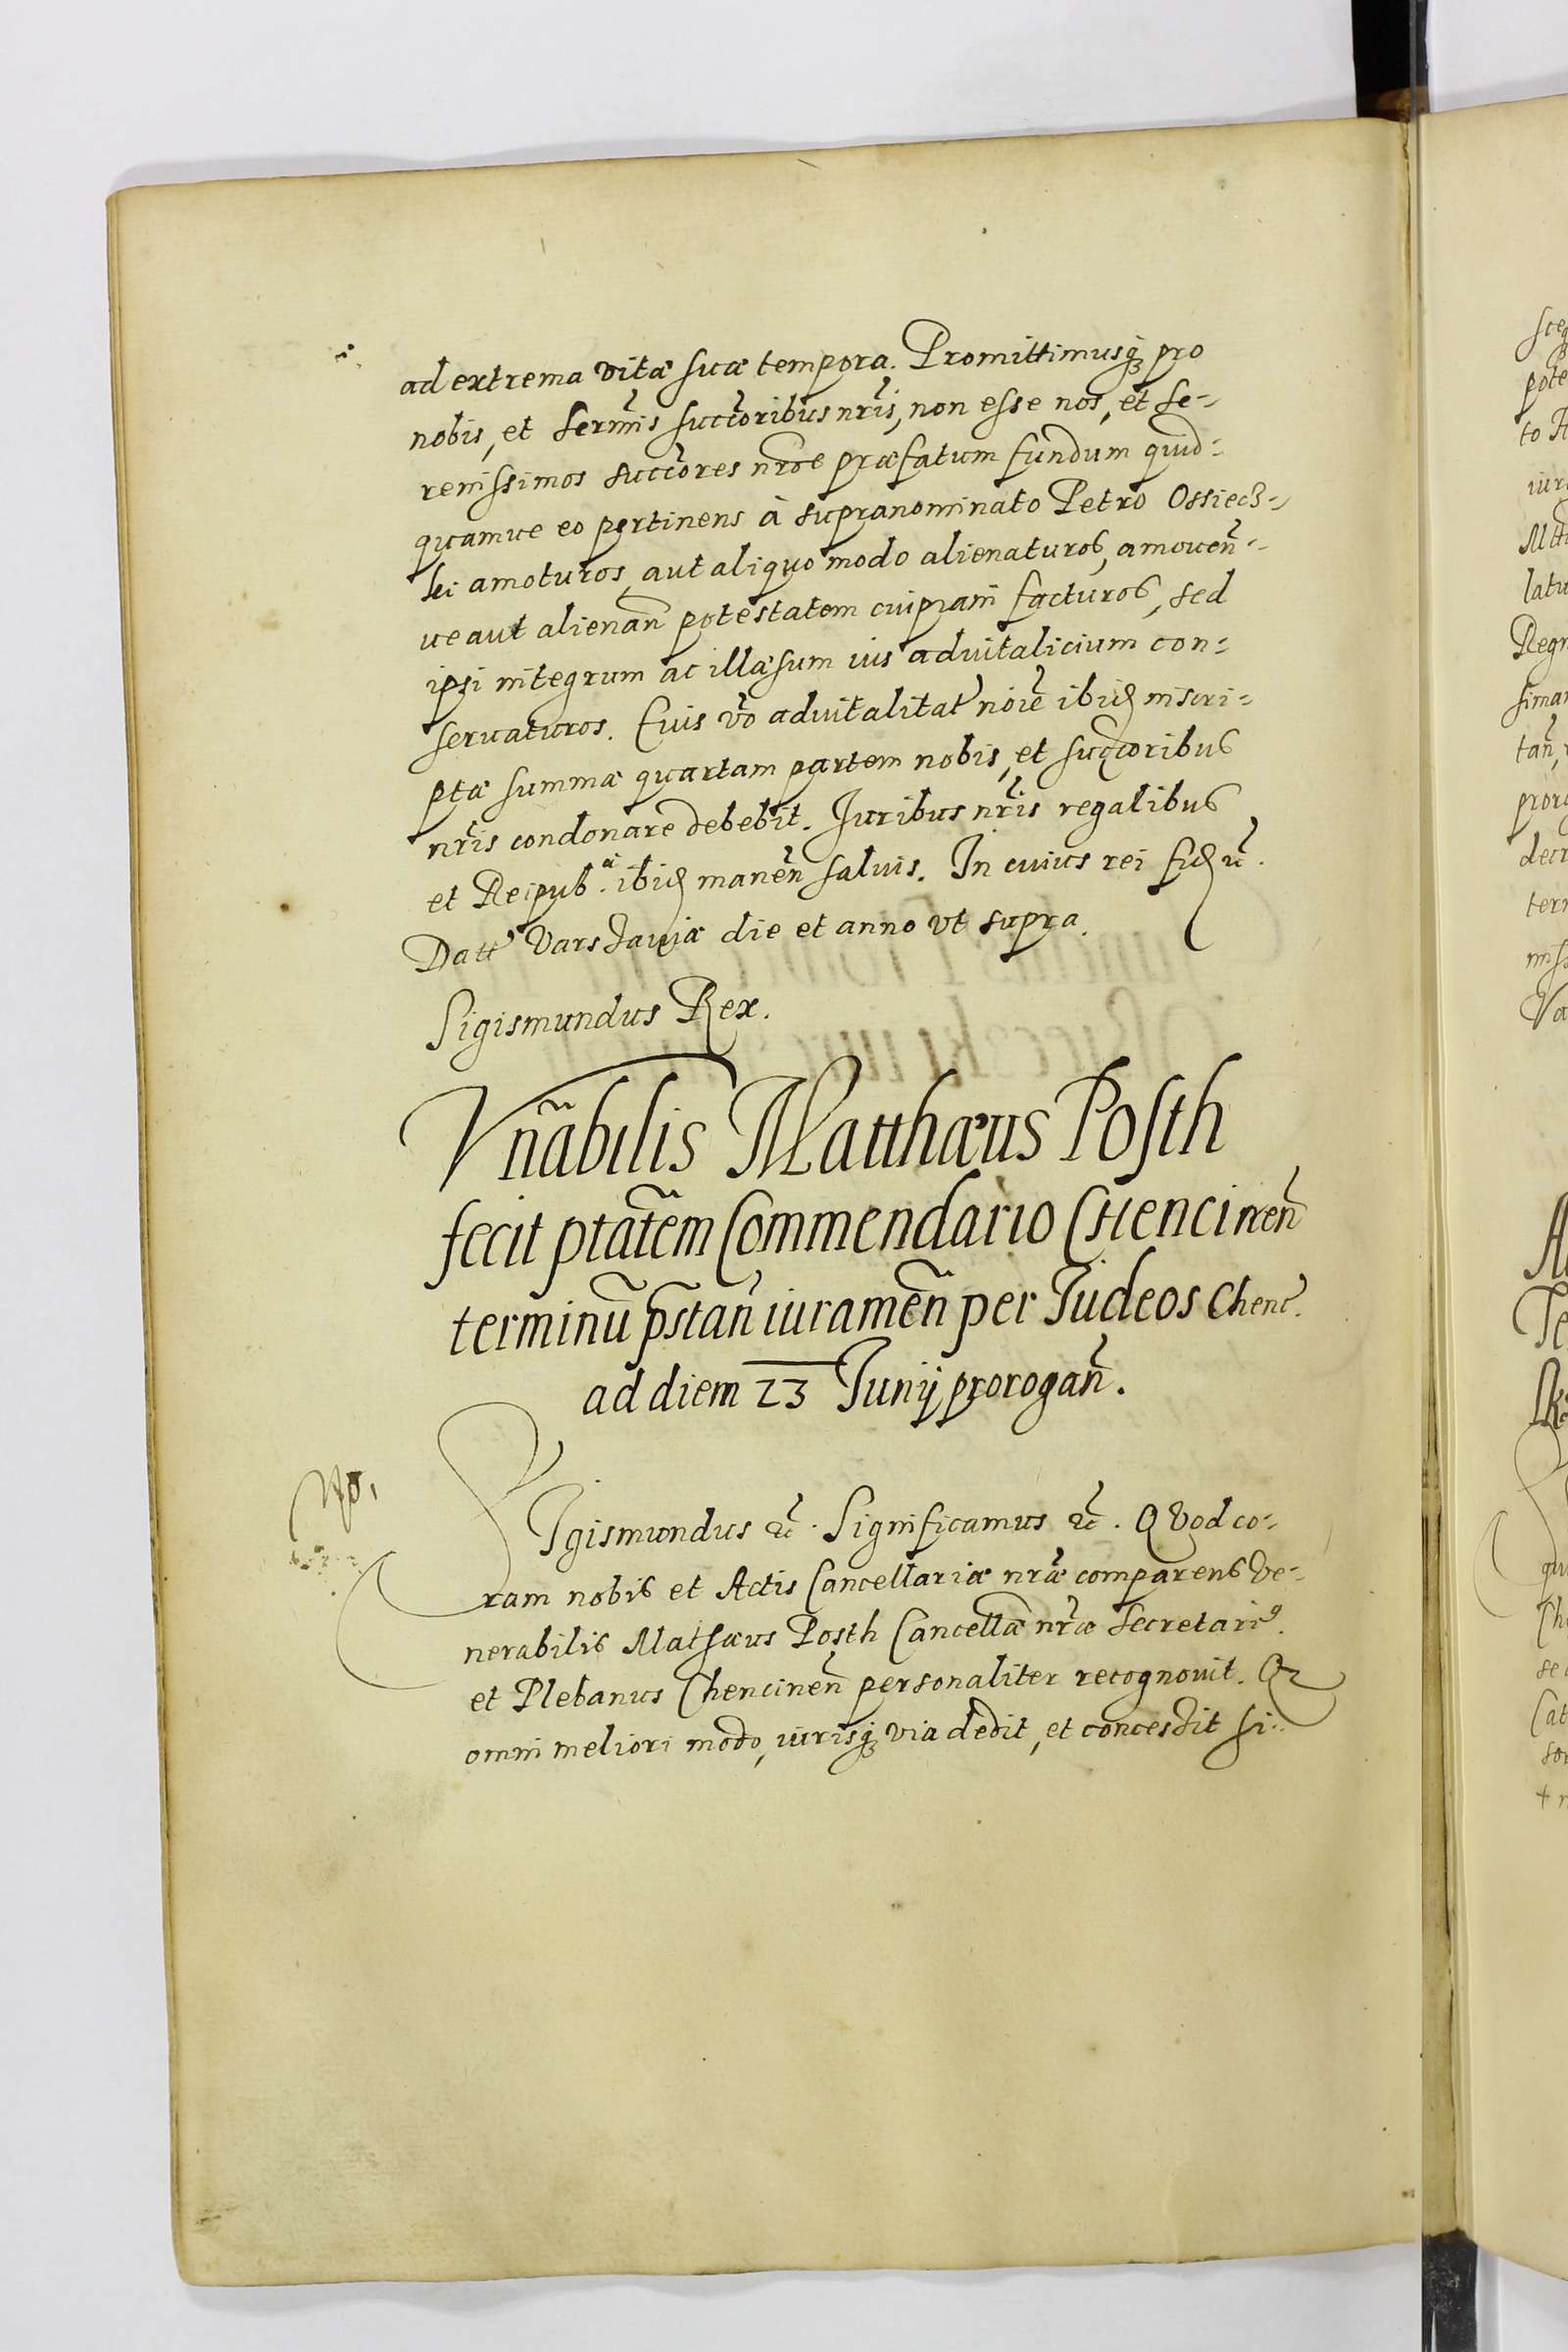 ad extrema vitæ suæ tempora. Promittimusq₃ pro
nobis, et Serm̃is succ̃oribus nr̃is, non esse nos, et Se-
renissimos succ̃ores nr̃os præfatum fundum quid-
quamue eo pertinens à supranominato Petro Ossiecz-
ki amoturos, aut aliquo modo alienaturos, amouen̄-
ue aut alienan̄ potestatem cuipiam facturos, sed
ipsi integrum ac illæsum ius aduitalicium con-
seruaturos. Cuis v̄o aduitalitat̃ noiē ibid inscri-
ptæ summæ quartam partem nobis, et succoribus
nr̃is condonare debebit. Juribus nr̃is regalibus
et Reipub.æ ibid manen̄ saluis. In cuius rei fid ꝛc̃.
Datt̃ Varsauiæ die et anno vt supra.
Sigismundus Rex.
Vn̄abilis Matthæus Posth
fecit ptat̃em Commendario Chencinen̄
terminū pstan̄ iuramen̄ per Judeos Chenc̃.
ad diem 23 Junij prorogan̄.
SIgismundus ꝛc̃. Significamus ꝛc̃. Qvod co-
ram nobis et Actis Cancellariæ nr̃æ comparens Ve-
nerabilis Mathæus Posth Cancellæ nr̃æ Secretari⁹
et Plebanus Chencinen̄ personaliter recognouit. Qꝛ
omni meliori modo, iurisq₃ via dedit, et concessit fi-